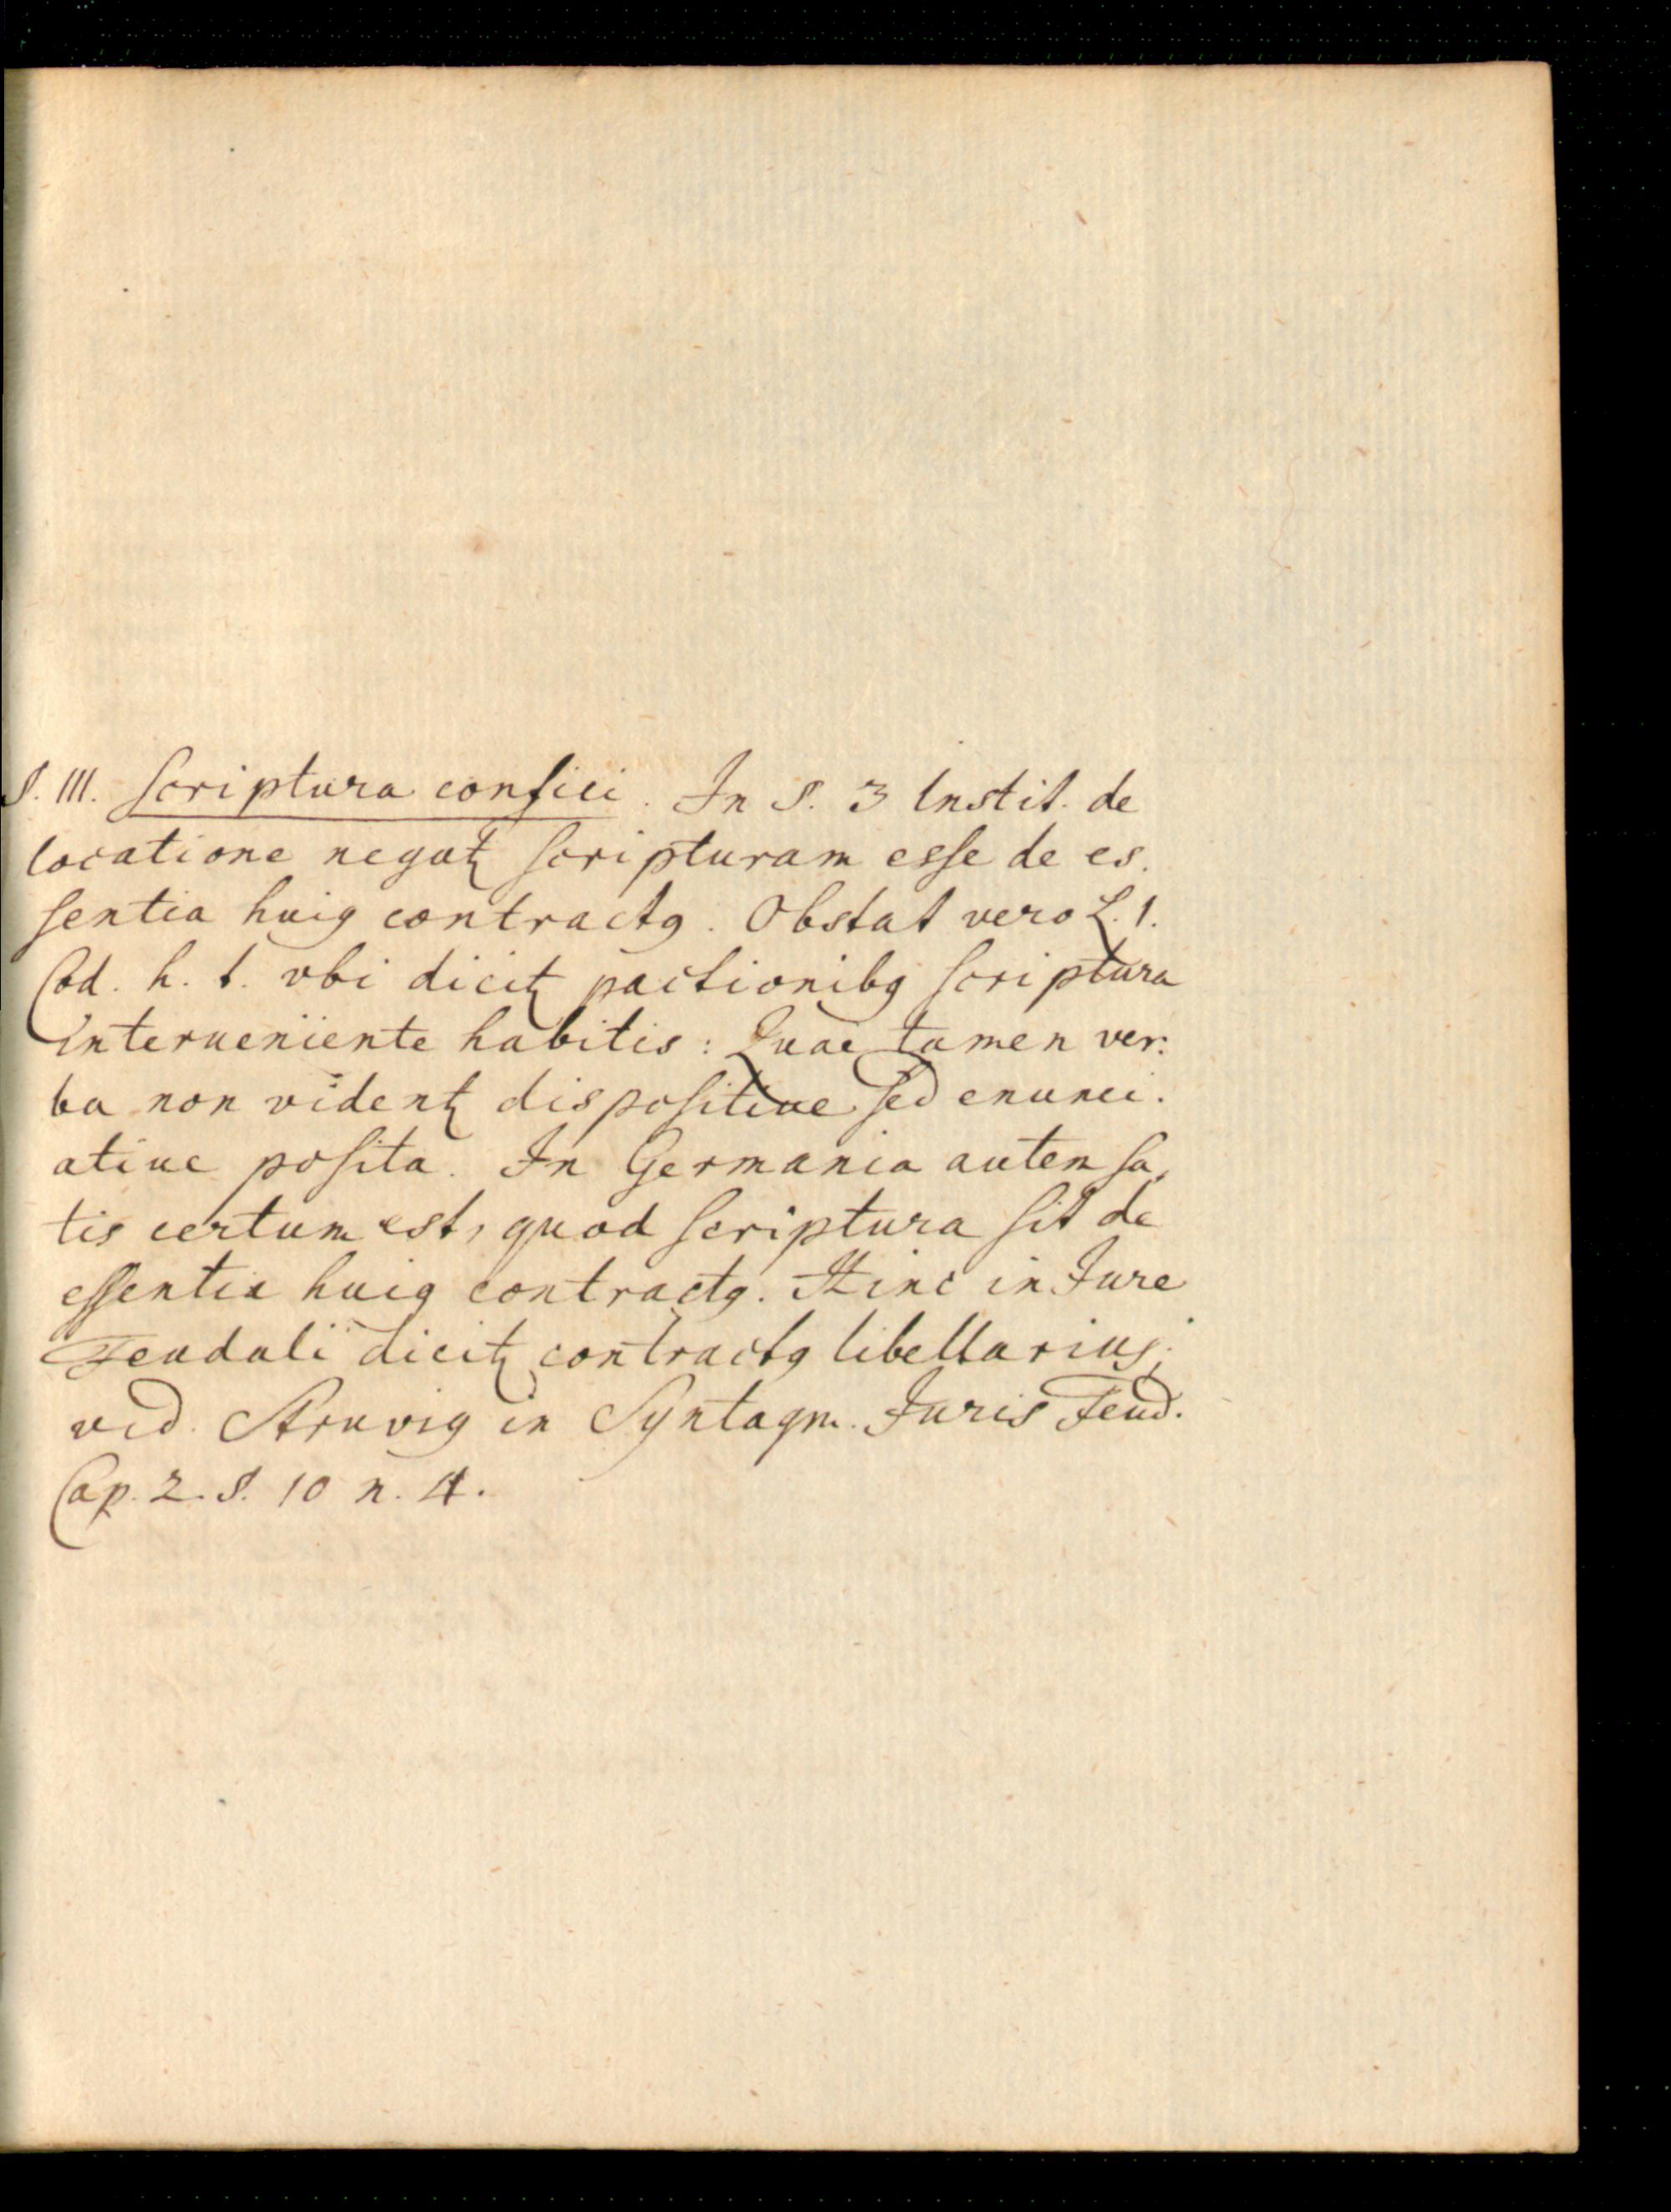 §. III. Scriptura confici. In §. 3 Instit. de
locatione negatꝛ scripturam esse de es-
sentia huiꝰ contractꝰ. Obstat vero L. 1.
Cod. h. t. vbi dicitꝛ pactionibꝰ scriptura
interueniente habitis: Quae tamen ver-
ba non videntꝛ dispositiue sed enunci-
atiue posita. In Germania autem sa-
tis certum est, quod scriptura sit de
essentia huiꝰ contractꝰ. Hinc in Jure
Feudali dicitꝛ contractꝰ libellarius;
vid. Struviꝰ in Syntagm. Juris Feud.
Cap. 2. §. 10 n. 4.